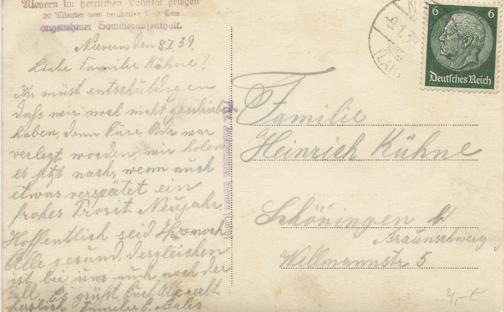 Nievern im herrlichen Lahntal gelegen
20 Minuten vom berühmten Bad Ems
angenehmer Sommeraufenthalt.
Nievern den 8.I.39.
Liebe Familie Kühne!
Ihr müst entschuldigen
daß wir noch nicht geschrieben
haben, denn Eure Adr war
verlegt worden, wir holen
es jtzt nach, wenn auch
etwas verspätet ein
frohes Prosit Neujahr.
Hoffentlich seid Ihr noch
Alle gesund, desgleichen
ist bei uns auch noch der
Fall. Es grüßt Euch Alle
herzlich Familie
6 6
Deutsches Reich
Familie
Heinrich Kühne
Schöningen b/
Braunschweig
Willmannstr 5